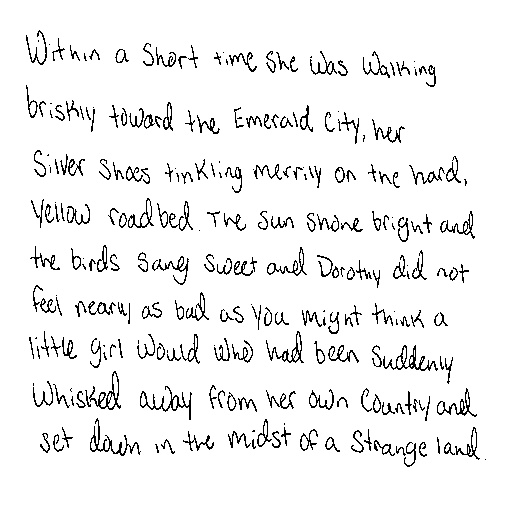 Within a short time she was walking
briskly toward the Emerald City, her
Silver Shoes tinkling merrily on the hard,
yellow roadbed. The sun shone bright and
the birds sang sweet and Dorothy did not
feel nearly as bad as you might think a
little girl would who had been suddenly
whisked away from her own country and
set down in the midst of a strange land.